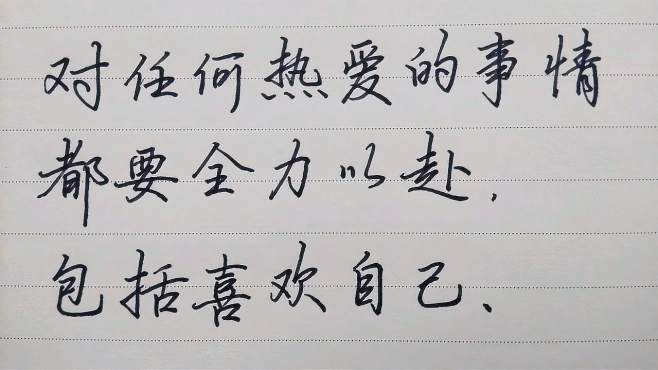 对任何热爱的事情
都要全力以赴,
包括喜欢自己、